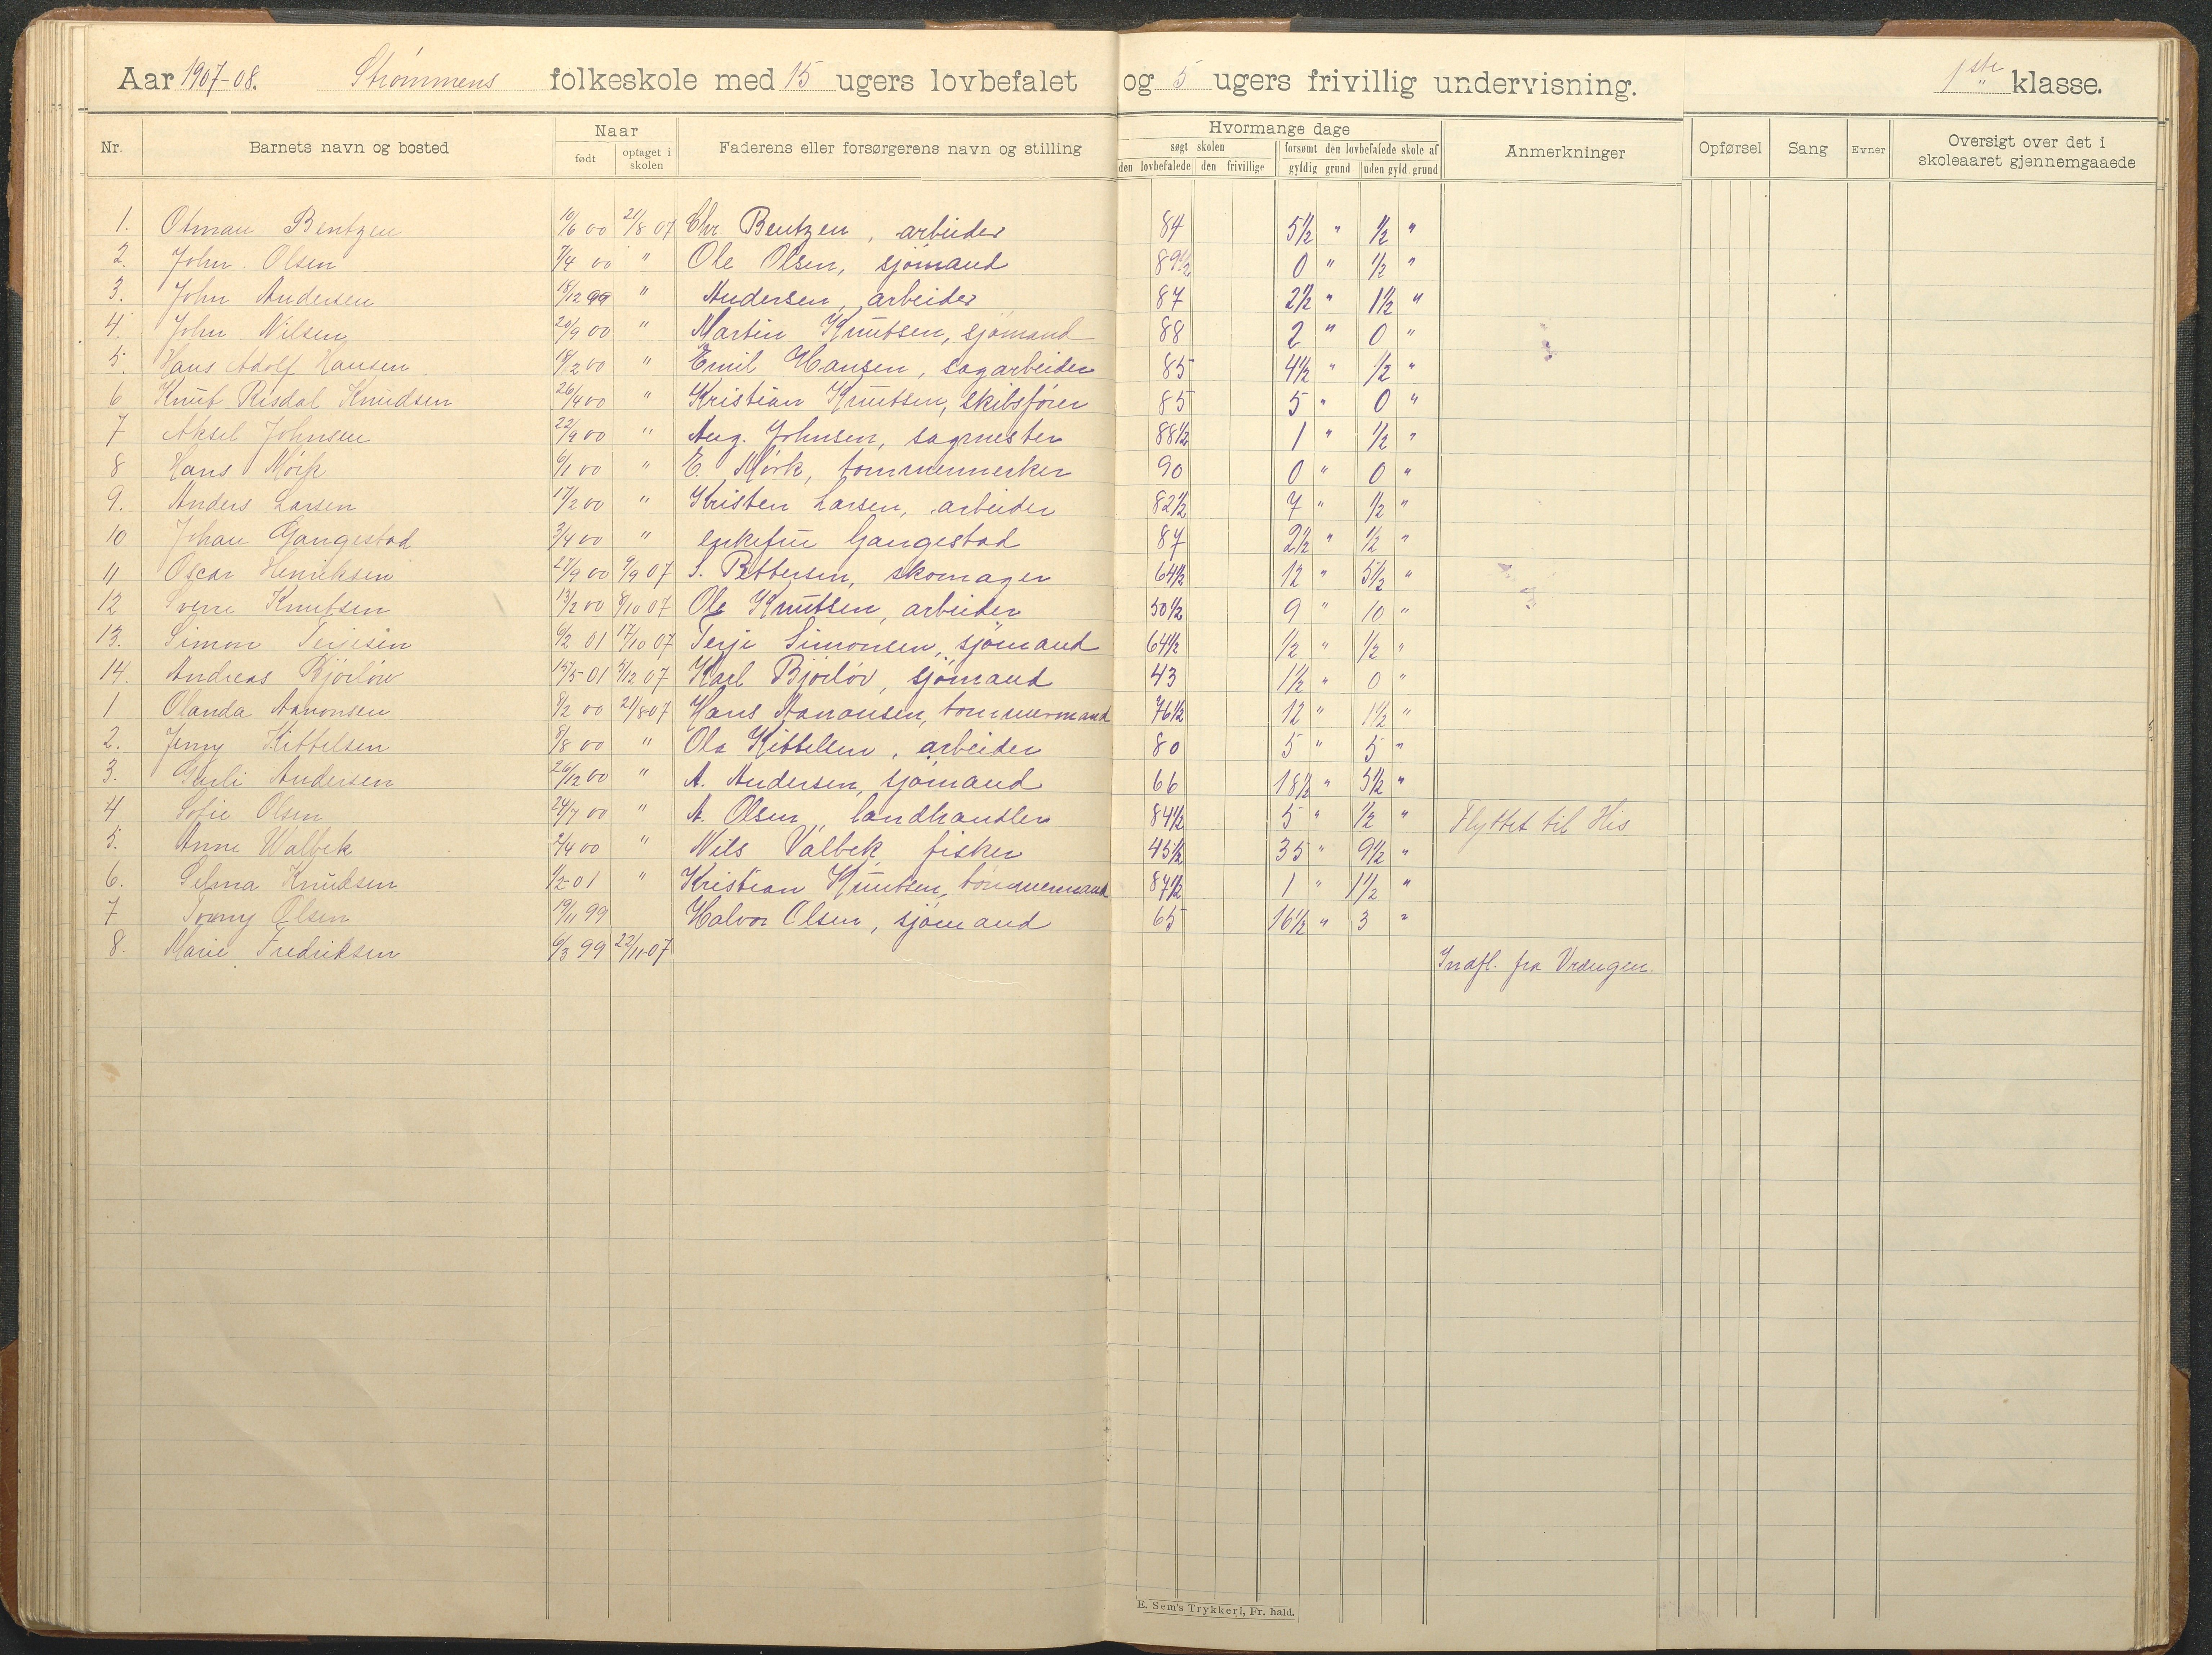 Aar 1907-08. Strømmens folkeskole med 15 ugers lovbefalet og 5 ugers frivillig undervisning. 1ste klasse.
Nr. Barnets navn og bosted Naar født optaget i skolen Faderens eller forsørgerens navn og stilling Hvormange dage søgt skolen den lovbefalede den frivillige forsømt den lovbefalede skole af gyldig grund uden gyld. grund Anmerkninger Opførsel Sang Evner Oversigt over det i skoleaaret gjennemgaaede
1. Otman Bentzen 10/6 00 21/8 07 Chr. Bentzen, arbeider 84 5½ " ½ "
2. John Olsen 7/4 00 " Ole Olsen, sjømand 89½ 0 " ½ "
3. John Andersen 18/12 99 " Andersen, arbeider 87 2½ " 1½ "
4. John Nilsen 20/9 00 " Martin Knutsen, sjømand 88 2 " 0 "
5. Hans Adolf Hansen 18/2 00 " Emil Hansen, sagarbeider 85 4½ " ½ "
6 Knut Risdal Knudsen 26/4 00 " Kristian Knutsen, skibsfører 85 5 " 0 "
7 Aksel Johnsen 22/9 00 " Aug. Johnsen, sagmester 88½ 1 " ½ "
8 Hans Mørk 6/1 00 " E. Mørk, tømmermerker 90 0 " 0 "
9. Anders Larsen 17/2 00 " Kristen Larsen, arbeider 82½ 7 " ½ "
10 Johan Gangestad 3/4 00 " enkefru Gangestad 87 2½ " ½ "
11 Oscar Henriksen 27/9 00 9/9 07 S. Pettersen, skomager 64½ 12 " 5½ "
12 Sverre Knutsen 13/2 00 8/10 07 Ole Knutsen, arbeider 50½ 9 " 10 "
13. Simon Terjesen 6/2 01 17/10 07 Terje Simonsen, sjømand 64½ ½ " ½ "
14. Andreas Bjørløw 15/5 01 3/12 07 Karl Bjørløv, sjømand 43 1½ " 0 "
1 Olanda Aanonsen 8/2 00 21/8 07 Hans Aanonsen, tømmermand 76½ 12 " 1½ "
2. Jenny Kittelsen 8/8 00 " Ola Kittelsen, arbeider 80 5 " 5 "
3. Gurli Andersen 26/12 00 " A. Andersen, sjømand 66 18½ " 5½ "
4 Sofie Olsen 24/7 00 " A. Olsen, landhandler 84½ 5 " ½ " Flyttet til His
5. Anne Walbek 2/4 00 " Nils Valbek, fisker 45½ 35 " 9½ "
6. Selma Knudsen 1/2 01 " Kristian Knutsen, tømmermand 87½ 1 " 1½ "
7 Tomy Olsen 19/11 99 Halvor Olsen, sjømand 65 16½ " 3 "
8. Marie Fredriksen 6/3 99 22/11-07 Indfl. fra Vrængen.
E. Sem's Trykkeri, Fr. hald.